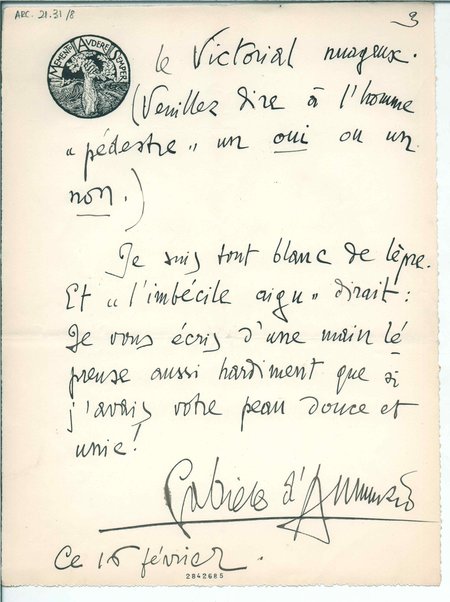 ARC. 21.31/8
3
MEMENTO AUDERE SEMPER
le Victorial nuageux.
(Veuillez dire à l'homme
"pédestre" un oui ou un
non.)
Je suis tout blanc de lèpre.
Et "l'imbécile aigu" dirait:
Je vous écris d'une main lé
preuse aussi hardiment que si
j'avais votre peau douce et
unie!
Gabriele d'Annunzio
Ce 16 février.
2842685